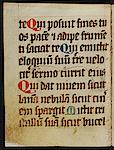 te Qui posuit fines tu
os pacē ⁊ adipe frumen
ti saciat te Qui emittit
eloquiū suū tre velo
cit sermo currit eius
Qui dat nivem sicut
lanā nebulā sicut cin
em spargit Mittit cri
stallū suū sicut buccel